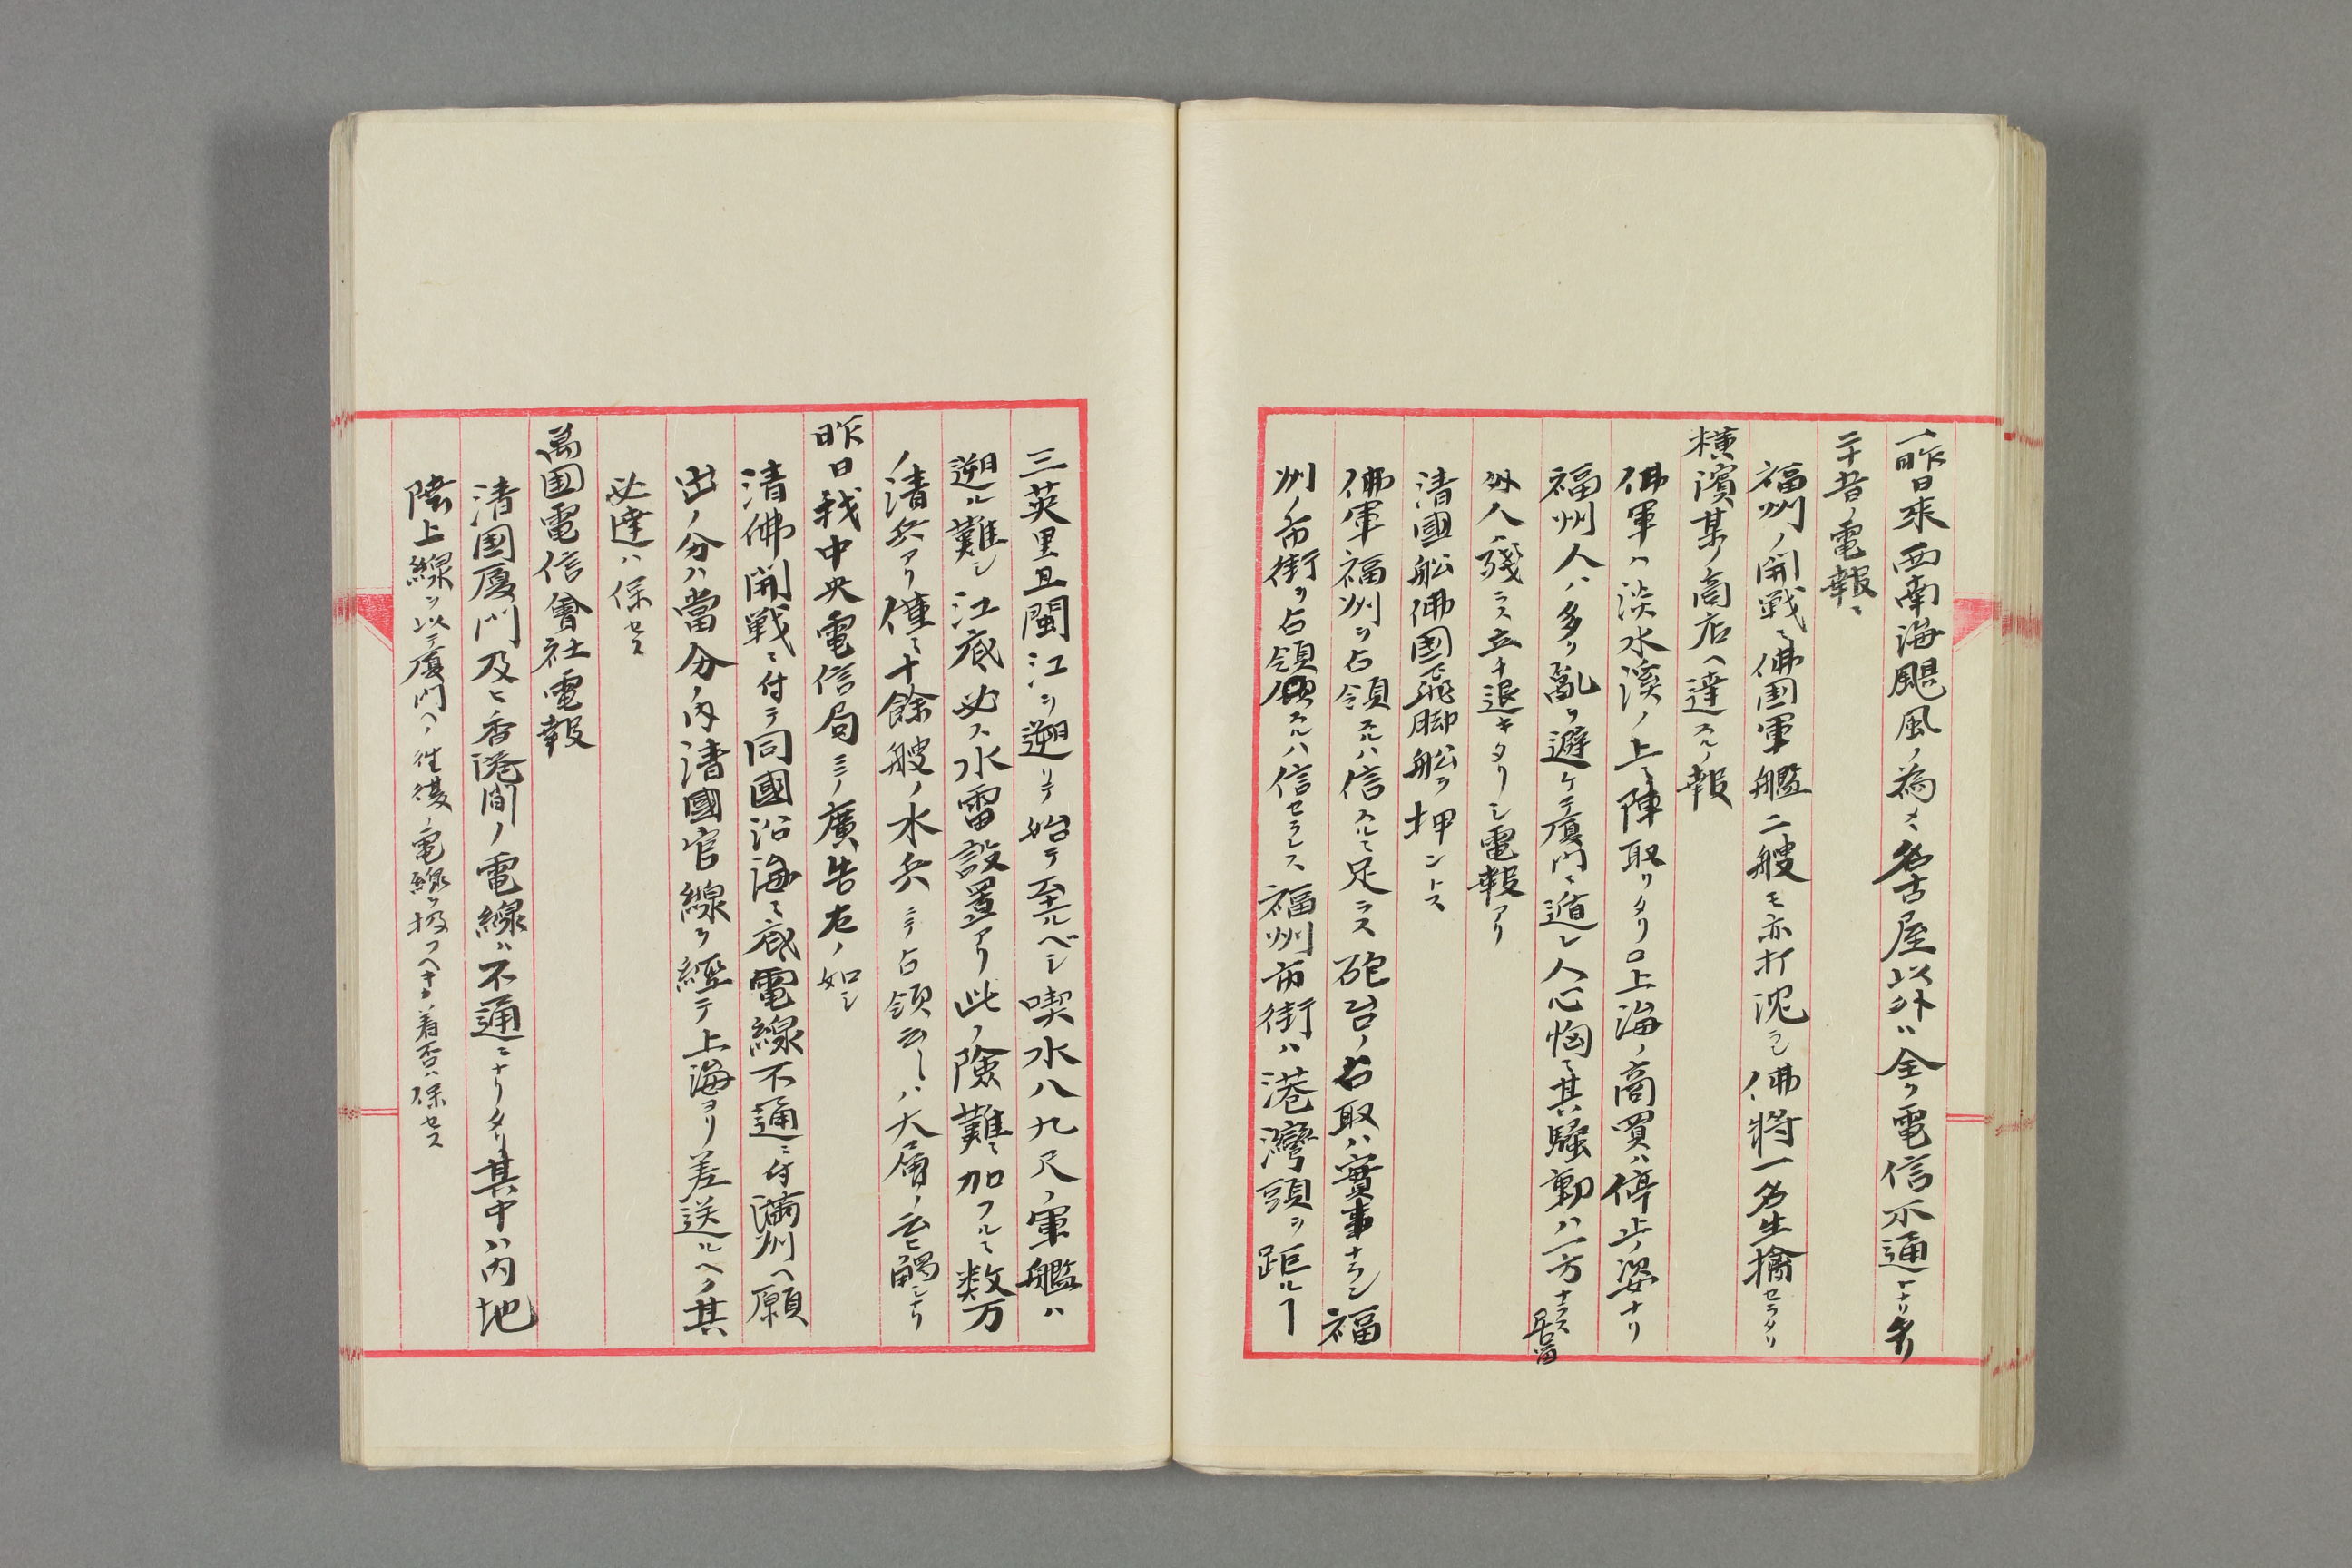 一昨日来西南海颶風ノ為メ名古屋以外ハ全ク電信不通トナリタリ
二十五日ノ電報ニ
福州ノ開戦ニ佛国軍艦二艘モ亦打沈ラレ佛将一名生擒セラレタリ
横濱某ノ商店ヘ達スルノ報
佛軍ハ淡水溪ノ上ニ陣取リタリ□上海ノ商買ハ停止ノ姿ナリ
福州人ハ多ク乱ヲ避ケテ厦門ニ遁レ人心恟ニ其騒動ハ一方ナラス居留
外人ハ残ラス立チ退キタリシ電報アリ
清國舩佛国飛脚舩ヲ押ントス
佛軍福州ヲ占領スルハ信スルニ足ラス砲台ノ占取ハ實事ナラン福
州ノ市街ヲ占領スルハ信セラレス福州市街ハ港灣頭ヲ距ル〡
三英里且閩江ヲ遡リテ始テ至ルベシ喫水八九尺ノ軍艦ハ
遡ル難シ江底必ス水雷設置アリ此ノ険難ニ加フルニ数万
ノ清兵アリ僅ニ十餘艘ノ水兵ニテ占領云々ハ大層ノ云ヒ觸シナリ
昨日我中央電信局ミノ廣告左ノ如シ
清佛開戦ニ付テ同國沿海ニ底電線不通ニ付満州ヘ願
出ノ分ハ當分ノ内清國官線ヲ經テ上海ヨリ差送ルヘク其
必達ハ保セス
萬国電信會社電報
清国厦門及ヒ香港間ノ電線ハ不通ニナリタリ其中ハ内地
陸上線ヲ以テ厦門ヘノ往復ノ電線ヲ扱フヘキカ着否ハ保セス